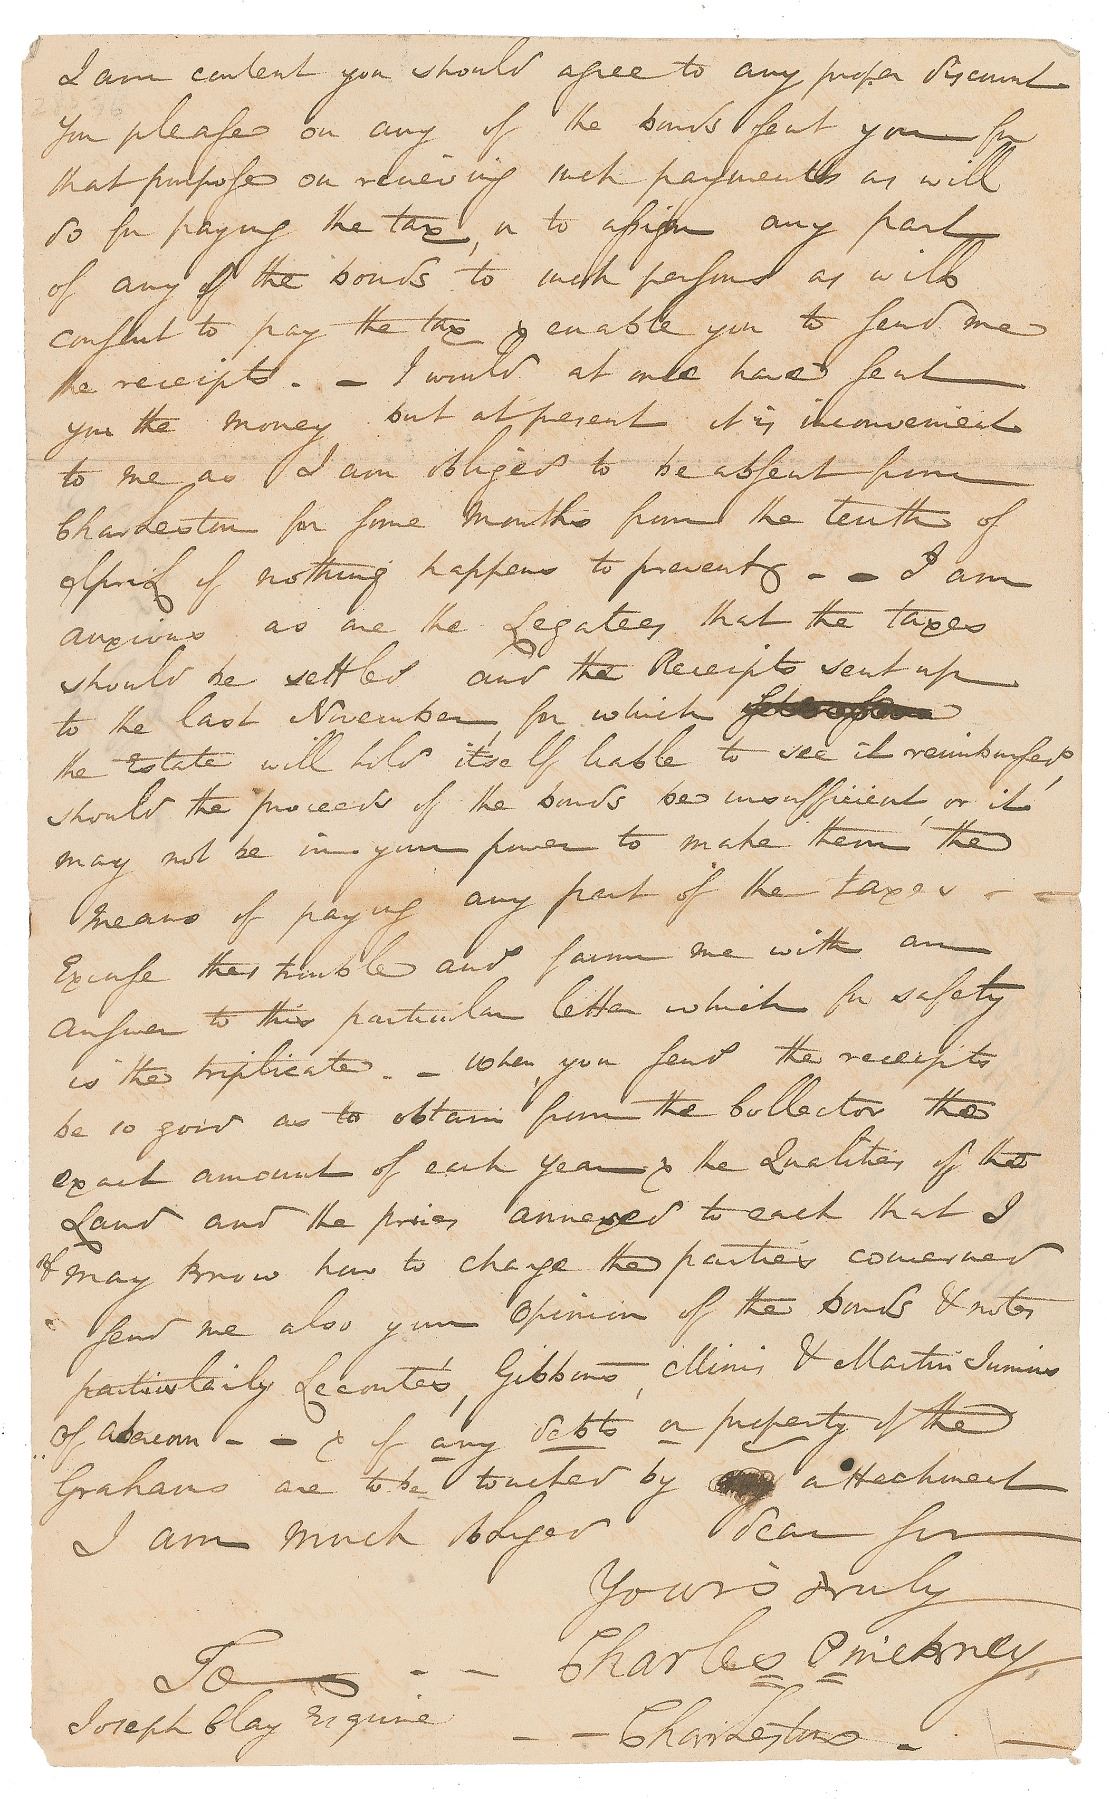 I am content you should agree to any proper discount
you please on any of the bonds sent you for
that purpose on recieving such payments as will
do for paying the tax, or to assign any part
of any of the bonds to such persons as will
consent to pay the tax & enable you to send me
the receipts. - I would at once have sent
you the money but at present it is inconvenient
to me as I am obliged to be absent from
Charleston for some Months from the tenth of
April if nothing happens to prevent - - I am
anxious as are the Legatees that the taxes
should be settled and the Receipts sent up
to the last November, for which
the Estate will hold itself liable to see it reimbursed,
should the proceeds of the bonds be insufficient, or it
may not be in your power to make them the
Means of paying any part of the taxes - -
Excuse this trouble and favour me with an
answer to this particular letter which for safety
is the triplicate. - When you send the receipts
be so good as to obtain from the Collector the
exact amount of each year & the Qualities of the
Land and the prices annexed to each that I
may know how to charge the parties concerned
send me also your opinion of the bonds & notes
particularly Leconte's, Gibbons, Minis & Martin Junius
of - - & if any debts or property of the
Grahams are to be touched by attachment
I am much obliged dear sir
Yours truly
Charles Pinckney,
To - -
Joseph Clay Esquire
- - Charleston -